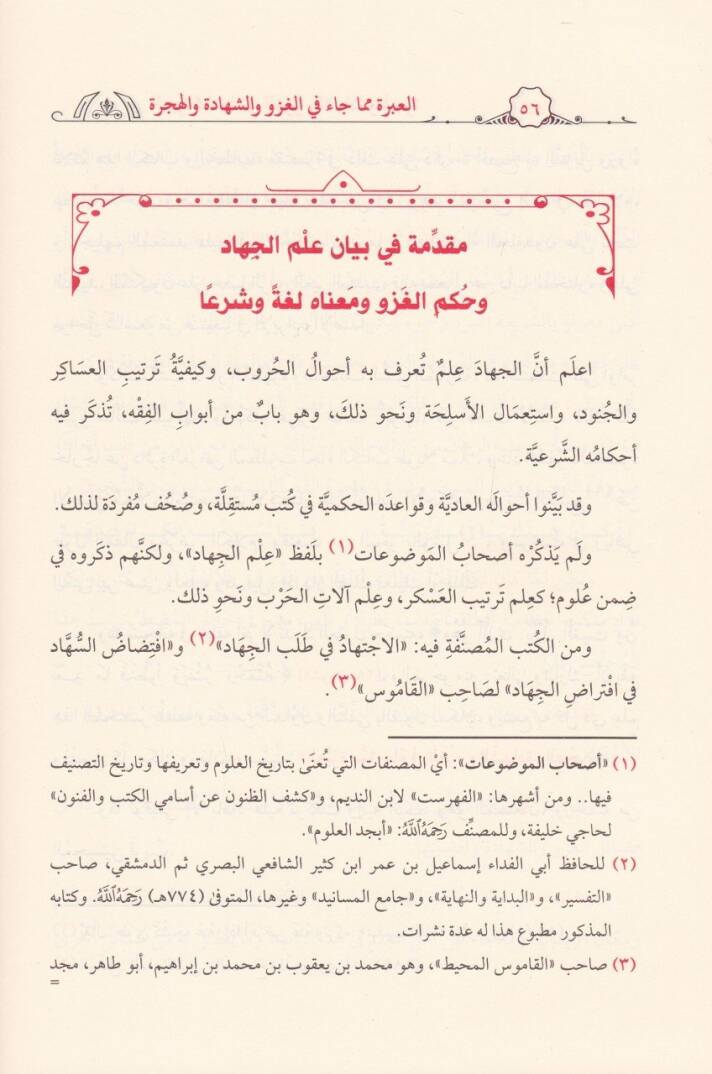 ٥٦
العبرة مما جاء في الغزو والشهادة والهجرة
مقدِّمة في بيان علْم الجِهاد
وحُكمِ الغَزو ومعناه لغةً وشرعًا
اعلَم أنَّ الجهادَ عِلمٌ تُعرف به أحوالُ الحُروب، وكيفيَّةُ تَرتيبِ العسَاكِر
والجُنود، واستِعمَال الأَسلِحَة ونَحو ذلكَ، وهو بابٌ مِن أبوابِ الفِقْه، تُذكَر فيه
أحكامُه الشَّرعيَّة.
وقد بَيَّنوا أحوالَه العاديَّة وقواعدَه الحكميَّة في كُتب مُستَقِلَّة، وصُحُف مُفردَة لذلك.
ولَم يَذكُرْه أصحابُ المَوضوعات(١) بلَفظ «عِلْم الجِهاد»، ولكنَّهم ذكَروه في
ضِمن عُلوم؛ كعِلم تَرتيب العَسْكر، وعِلْم آلاتِ الحَرْب ونَحوِ ذلك.
ومن الكُتب المُصنَّفةِ فيه: «الاجْتهادُ في طَلَب الجِهَاد»(٢) و«افْتِضاضُ السُّهَّاد
في افْتراضِ الجِهَاد» لصَاحِب «القَامُوس»(٣).
(١) «أصحاب الموضوعات»: أيْ المصنفات التي تُعنَىٰ بتاريخ العلوم وتعريفها وتاريخ التصنيف
فيها.. ومن أشهرها: «الفهرست» لابن النديم، و«كشف الظنون عن أسامي الكتب والفنون»
لحاجي خليفة، وللمصنِّف رَحِمَهُ ٱللَّهُ: «أبجد العلوم».
(٢) للحافظ أبي الفداء إسماعيل بن عمر ابن كثير الشافعي البصري ثم الدمشقي، صاحب
«التفسير»، و«البداية والنهاية»، و«جامع المسانيد» وغيرها، المتوفىٰ (٧٧٤هـ) رَحِمَهُ ٱللَّهُ. وكتابه
المذكور مطبوع هذا له عدة نشرات.
(٣) صاحب «القاموس المحيط»، وهو محمد بن يعقوب بن محمد بن إبراهيم، أبو طاهر، مجد
=